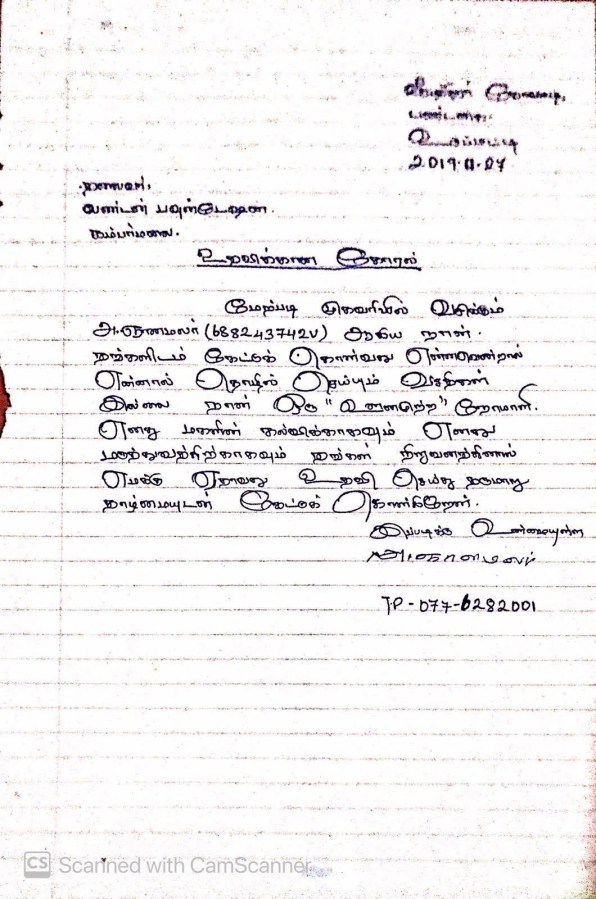 வீதி,
2019.11.27
தலைவர்,
லண்டன் பவுன்டேஷன்.
கம்பர்மலை.
உதவிக்கான கோரல்
மேற்படி முகவரியில் வசிக்கும்
அ.ஞானமலர் (688243742V) ஆகிய நான்.
தங்களிடம் கேட்டுக் கொள்வது என்னவென்றால்
என்னால் தொழில் செய்யும் வசதிகள்
இல்லை நான் ஒரு " " நோயாளி.
எனது மகளின் கல்விக்காகவும் எனது
மருத்துவத்திற்காகவும் தங்கள் நிறுவனத்தினால்
எமக்கு ஏதாவது உதவி செய்து தருமாறு
தாழ்மையுடன் கேட்டுக் கொள்கிறேன்.
இப்படிக்கு உண்மையுள்ள
அ.ஞானமலர்
TP - 077-6282001
CS Scanned with CamScanner